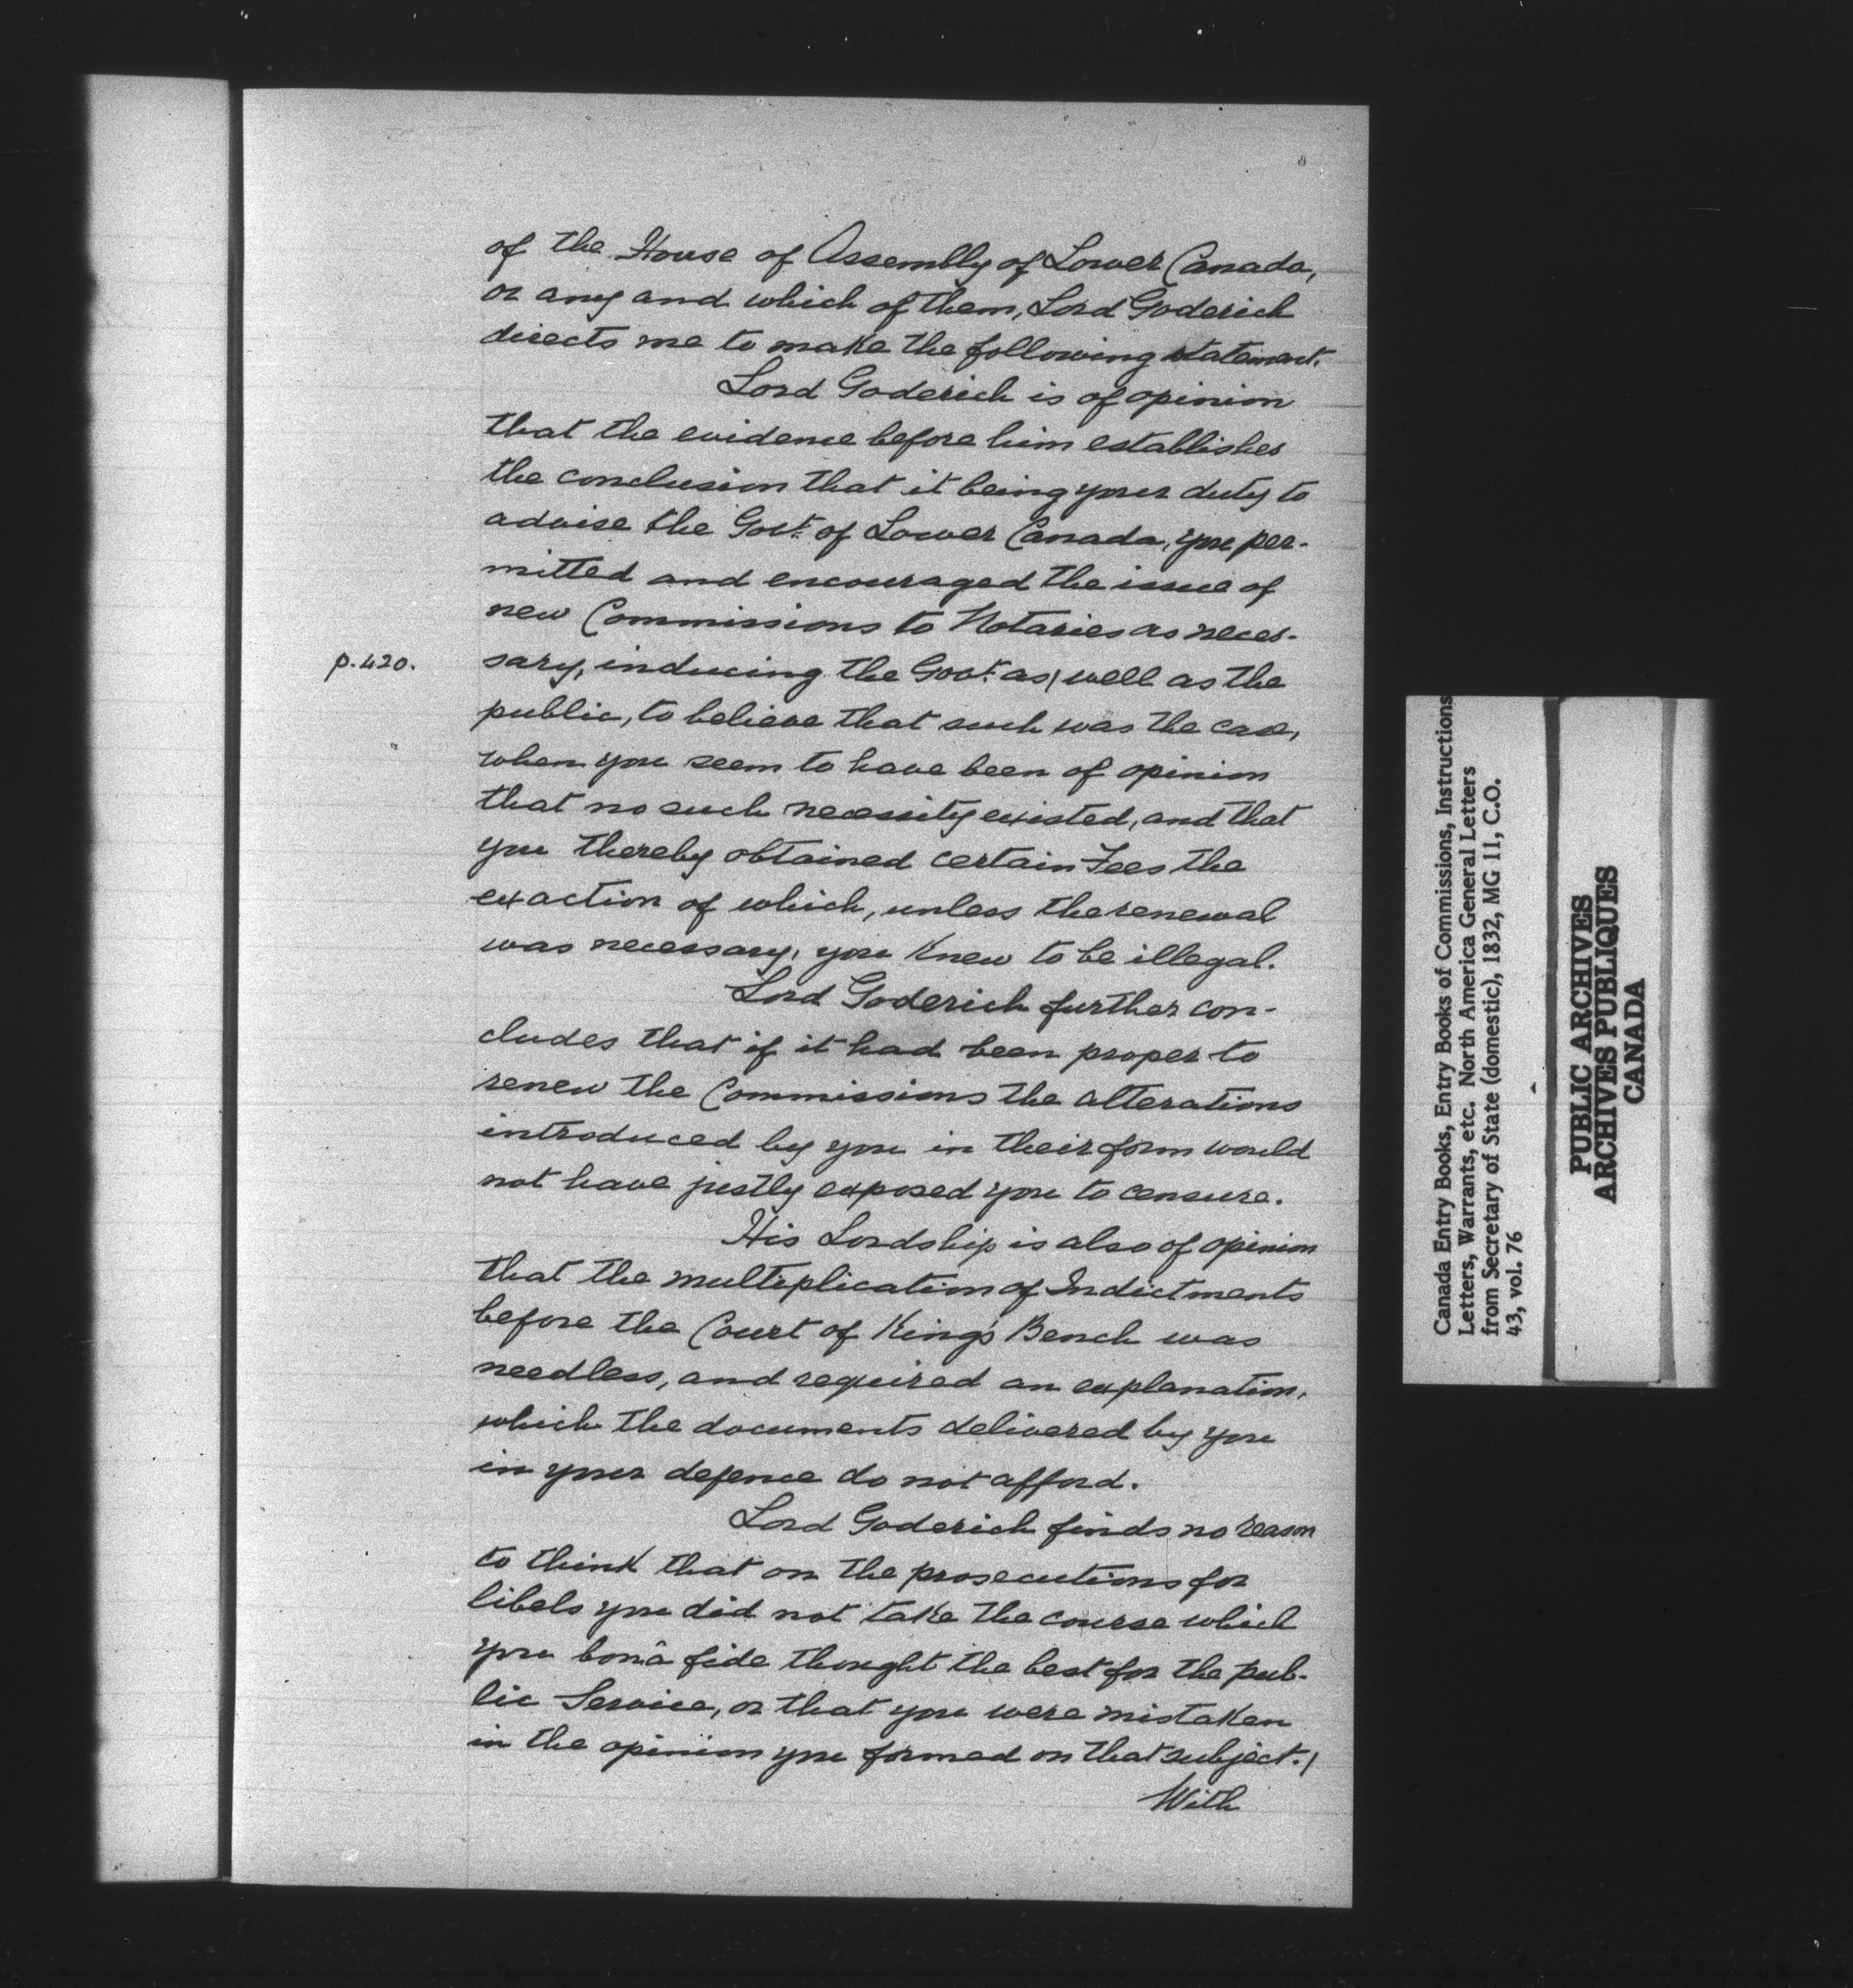 of the House of Assembly of Lower Canada,
or any and which of them, Lord Goderich
directs me to make the following statement.
Lord Goderich is of opinion
that the evidence before him establishes
the conclusion that it being your duty to
advise the Govt. of Lower Canada, you per-
mitted and encouraged the issue of
new Commissions to Notaries as neces-
p. 420.
sary, inducing the Govt. as/ well as the
public, to believe that such was the case,
when you seem to have been of opinion
that no such necessity existed, and that
you thereby obtained certain Fees the
exaction of which, unless the renewal
was necessary, you knew to be illegal.
Lord Goderich further con-
cludes that if it had been proper to
renew the Commissions the alterations
introduced by you in their form would
not have justly exposed you to censure.
His Lordship is also of opinion
that the multiplication of Indictments
before the Court of King's Bench was
needless, and required an explanation,
which the documents delivered by you
in your defence do not afford.
Lord Goderich finds no reason
to think that on the prosecutions for
libels you did not take the course which
you bonâ fide thought the best for the pub-
lic Service, or that you were mistaken
in the opinion you formed on that subject./
With
Canada Entry Books, Entry Books of Commissions, Instructions
Letters, Warrants, etc. North America General Letters
from Secretary of State (domestic), 1832, MG 11, C.O.
43, vol. 76
PUBLIC ARCHIVES
ARCHIVES PUBLIQUES
CANADA